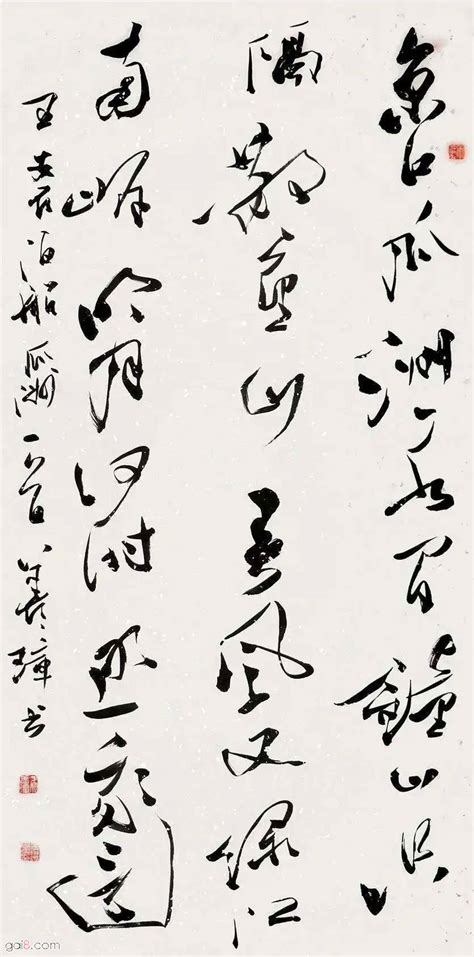 京口瓜洲一水间鐘山只
隔數重山春風又绿江
南岸明月何時照我還
王安石泊船瓜洲一首 璋书
gai8.com